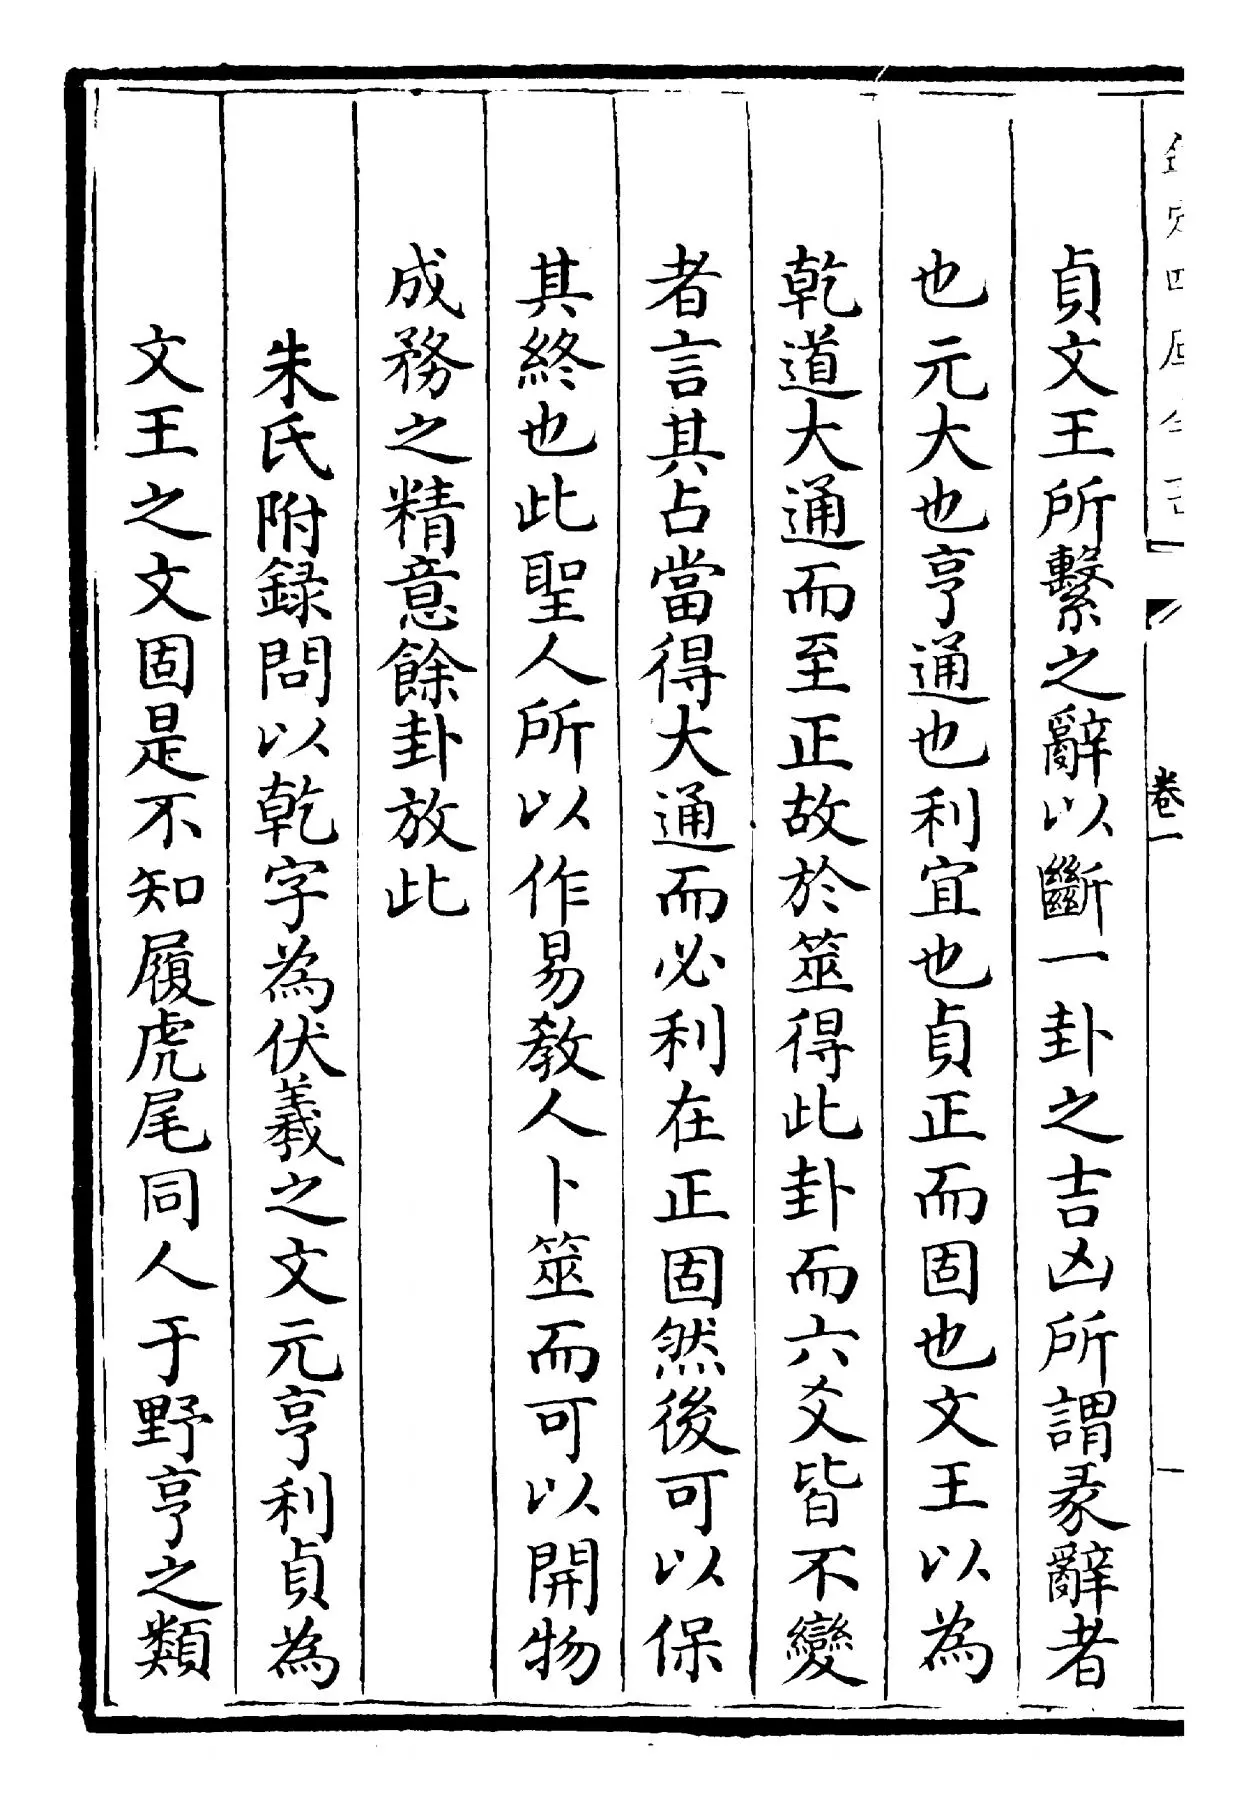 欽定四庫全書
卷一
貞文王所繫之辭以斷一卦之吉凶所謂彖辭者
也元大也亨通也利宜也貞正而固也文王以為
乾道大通而至正故於筮得此卦而六爻皆不變
者言其占當得大通而必利在正固然後可以保
其終也此聖人所以作易教人卜筮而可以開物
成務之精意餘卦放此
朱氏附録問以乾字為伏羲之文元亨利貞為
文王之文固是不知履虎尾同人于野亨之類